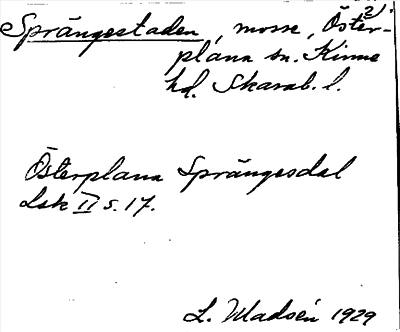 Sprängestaden, mosse, Öster-
2)
plana sn. Kinne
hd. Skarab. l.
Österplana Sprängesdal
Lsk II s. 17.
L. Madsén 1929